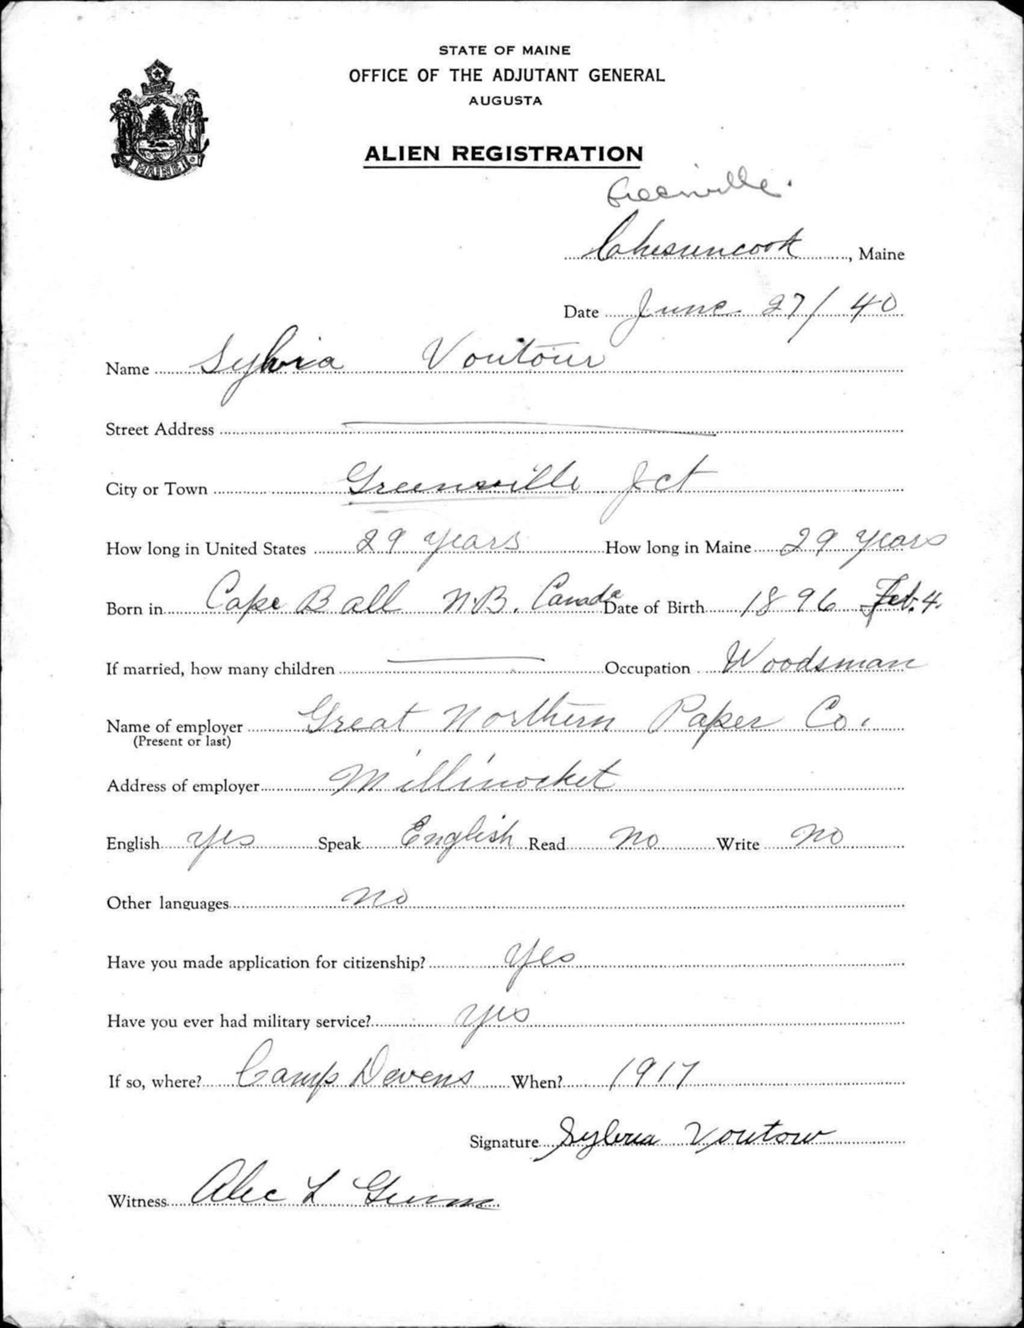 STATE OF MAINE
OFFICE OF THE ADJUTANT GENERAL
AUGUSTA
ALIEN REGISTRATION
Greenville.
Chesuncook, Maine
Date June 27/40
Name Sylvia Voutour
Street Address
City or Town Greenville Jct
How long in United States 29 years How long in Maine 29 years
Born in Cape Ball N.B. Canada Date of Birth 1896 Feb. 4.
If married, how many children Occupation Woodsman
Name of employer Great Northern Paper Co.
(Present or last)
Address of employer Millinocket
English yes Speak English Read no Write no
Other languages no
Have you made application for citizenship? Yes
Have you ever had military service? yes
If so, where? Camp Devens When? 1917
Signature Sylvia Voutour
Witness Alec L